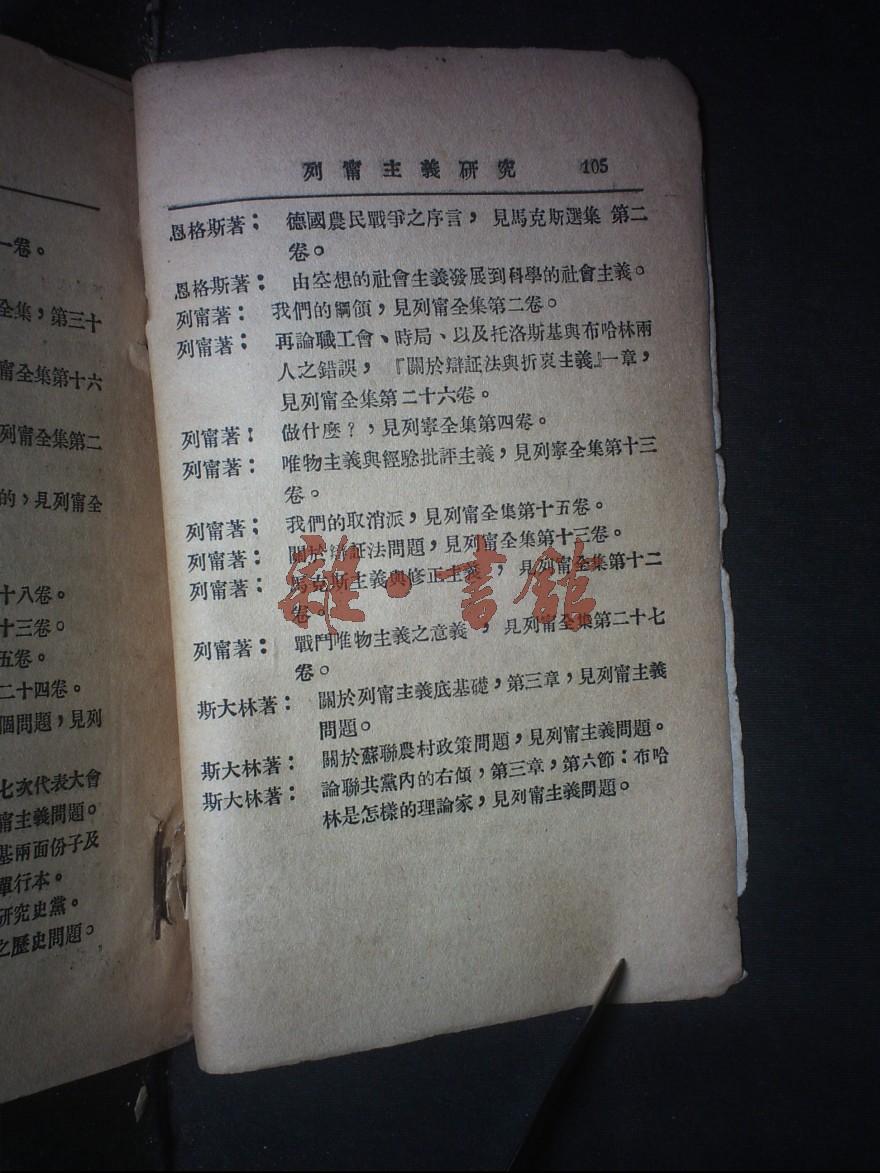 一卷。
全集，第三十
甯全集第十六
列甯全集第二
的，見列甯全
十八卷。
十三卷。
五卷。
二十四卷。
個問題，見列
七次代表大會
甯主義問題。
基兩面份子及
單行本。
研究史黨。
之歷史問題。
列甯主義研究 105
恩格斯著： 德國農民戰爭之序言，見馬克斯選集 第二
卷。
恩格斯著： 由空想的社會生義發展到科學的社會主義。
列甯著： 我們的綱領，見列甯全集第二卷。
列甯著： 再論職工會、時局、以及托洛斯基與布哈林兩
人之錯誤，『關於辯証法與折衷主義』一章，
見列甯全集第二十六卷。
列甯著： 做什麼？，見列寧全集第四卷。
列甯著： 唯物主義與經驗批評主義，見列寧全集第十三
卷。
列甯著： 我們的取消派，見列甯全集第十五卷。
列甯著： 關於辯証法問題，見列甯全集第十三卷。
列甯著： 馬克斯主義與修正主義，見列甯全集第十二
卷。
列甯著： 戰鬥唯物主義之意義，見列甯全集第二十七
卷。
斯大林著： 關於列甯主義底基礎，第三章，見列甯主義
問題。
斯大林著： 關於蘇聯農村政策問題，見列甯主義問題。
斯大林著： 論聯共黨內的右傾，第三章，第六節：布哈
林是怎樣的理論家，見列甯主義問題。
雜·書館